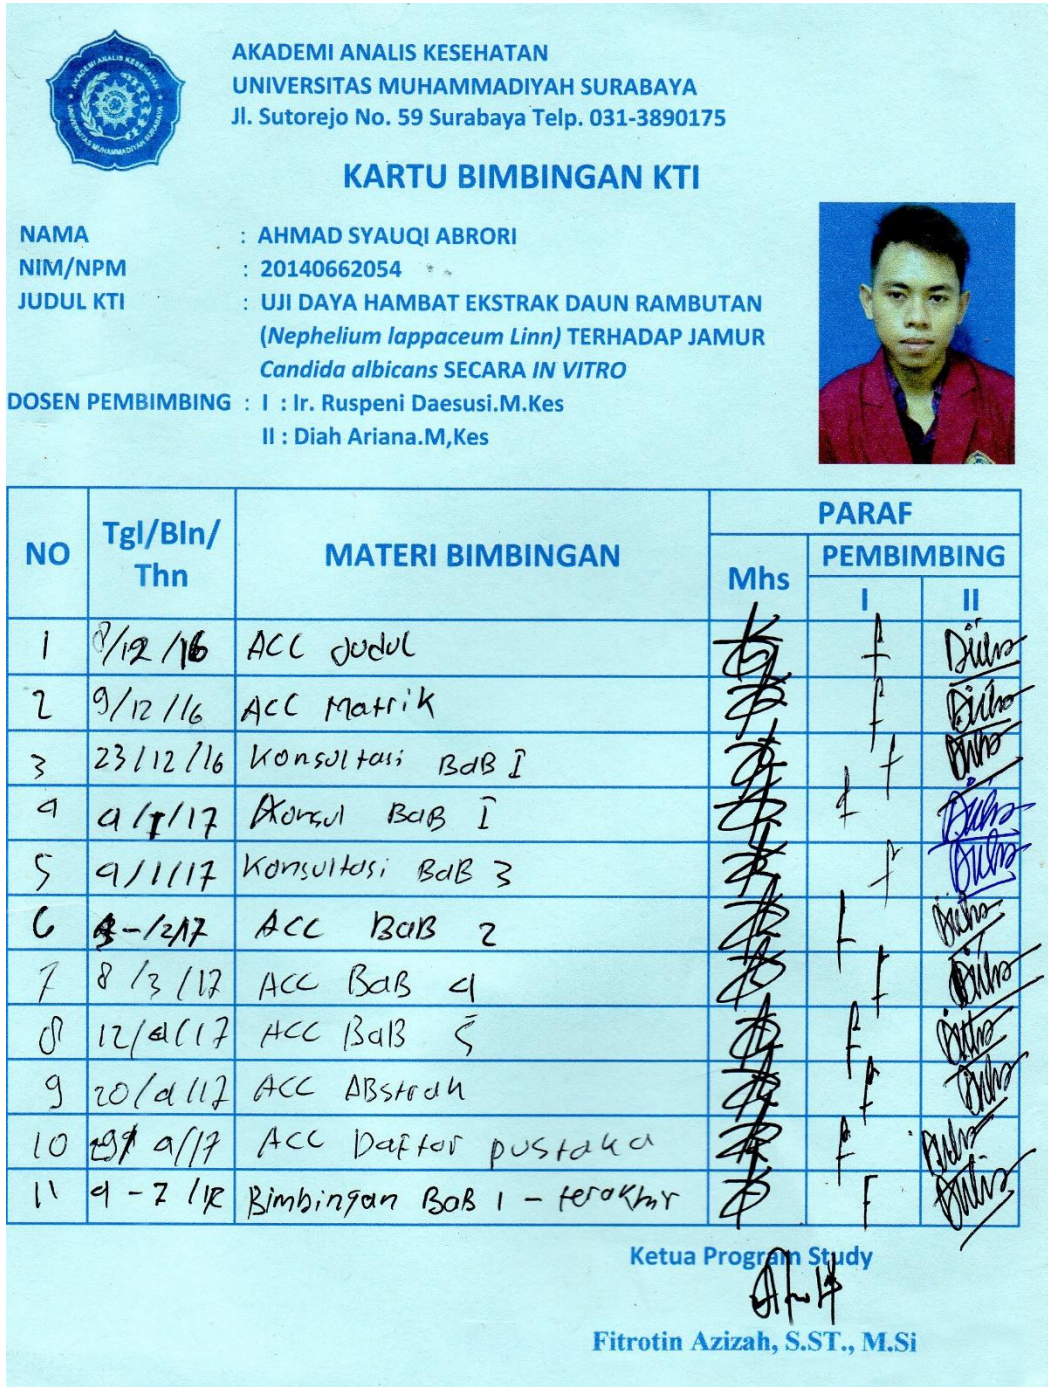 AKADEMI ANALIS KESEHATAN
UNIVERSITAS MUHAMMADIYAH SURABAYA
Jl. Sutorejo No. 59 Surabaya Telp. 031-3890175
KARTU BIMBINGAN KTI
NAMA : AHMAD SYAUQI ABRORI
NIM/NPM : 20140662054
JUDUL KTI : UJI DAYA HAMBAT EKSTRAK DAUN RAMBUTAN
(Nephelium lappaceum Linn) TERHADAP JAMUR
Candida albicans SECARA IN VITRO
DOSEN PEMBIMBING : I : Ir. Ruspeni Daesusi.M.Kes
II : Diah Ariana.M,Kes
NO Tgl/Bln/Thn MATERI BIMBINGAN PARAF
Mhs PEMBIMBING
I II
1 8/12/16 ACC Judul
2 9/12/16 ACC Matrik
3 23/12/16 Konsultasi BaB I
4 4/1/17 Konsul BaB I
5 9/1/17 Konsultasi BaB 3
6 ACC BaB 2
7 8/3/17 ACC BaB 4
8 12/4/17 ACC BaB 5
9 20/4/17 ACC ABstrak
10 ACC Daftar pustaka
11 Bimbingan BaB 1 - terakhir
Ketua Program Study
Fitrotin Azizah, S.ST., M.Si